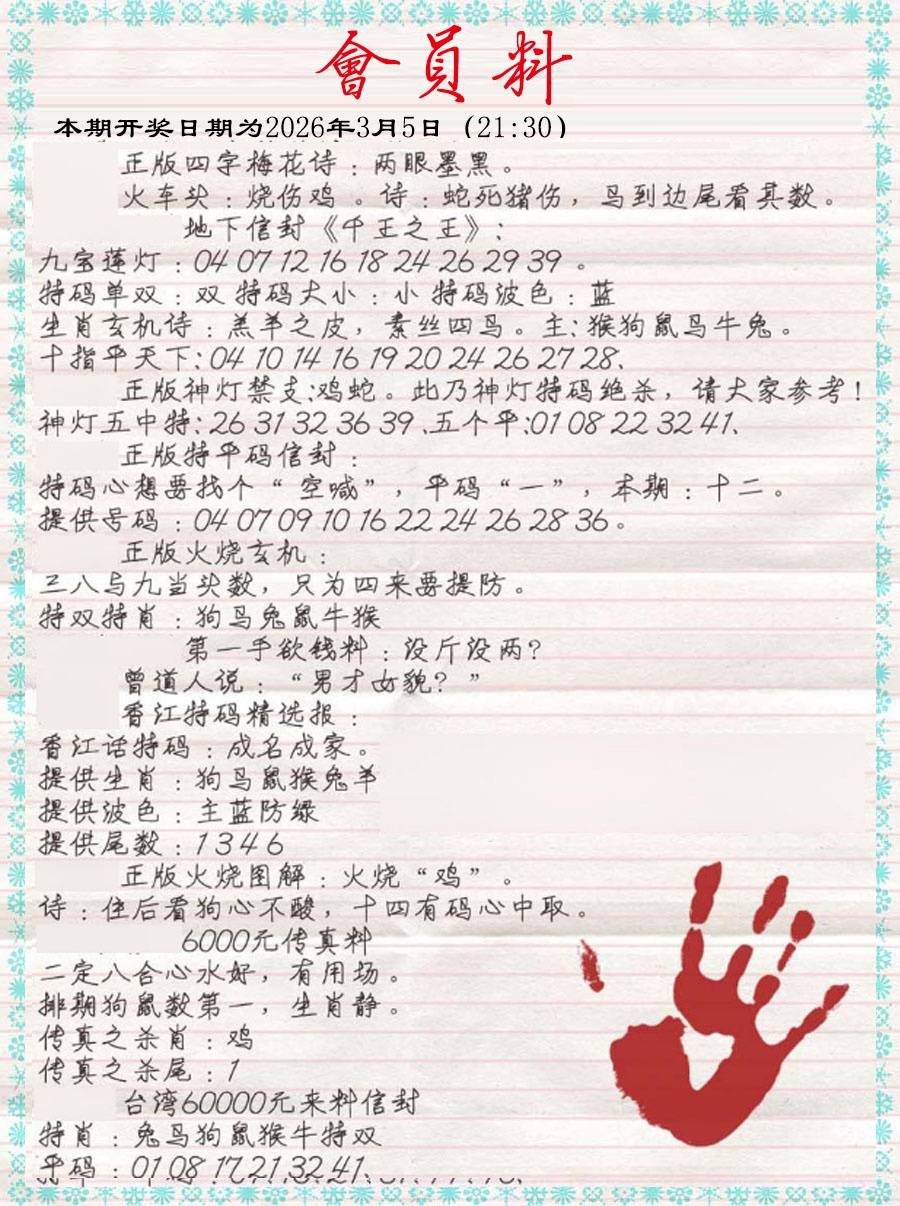 會員料
本期开奖日期为2026年3月5日（21:30）
正版四字梅花诗：两眼墨黑。
火车头：烧伤鸡 。诗：蛇死猪伤，鸟到边尾看其数。
地下信封《千王之王》：
九宝莲灯：04 07 12 16 18 24 26 29 39 。
特码单双：双 特码大小：小 特码波色：蓝
生肖玄机诗：羔羊之皮，素丝四马。主：猴狗鼠马牛兔。
十指平天下：04 10 14 16 19 20 24 26 27 28、
正版神灯禁支:鸡蛇。此乃神灯特码绝杀，请大家参考！
神灯五中特：26 31 32 36 39 、五个平:01 08 22 32 41、
正版特平码信封：
特码心想要找个“ 空喊”，平码“一”，本期：十二。
提供号码：04 07 09 10 16 22 24 26 28 36。
正版火烧玄机：
三八与九当头数，只为四来要提防。
特双特肖：狗马兔鼠牛猴
第一手欲钱料：没斤没两？
曾道人说：“男才女貌？”
香江特码精选报：
香江话特码：成名成家。
提供生肖：狗马鼠猴兔羊
提供波色：主蓝防绿
提供尾数：1 3 4 6
正版火烧图解：火烧“鸡”。
诗：住后看狗心不酸，十四有码心中取。
6000元传真料
二定八合心水好，有用场。
排期狗鼠数第一，生肖静。
传真之杀肖：鸡
传真之杀尾：1
台湾60000元来料信封
特肖：兔马狗鼠猴牛特双
平码：01 08 17 21 32 41、